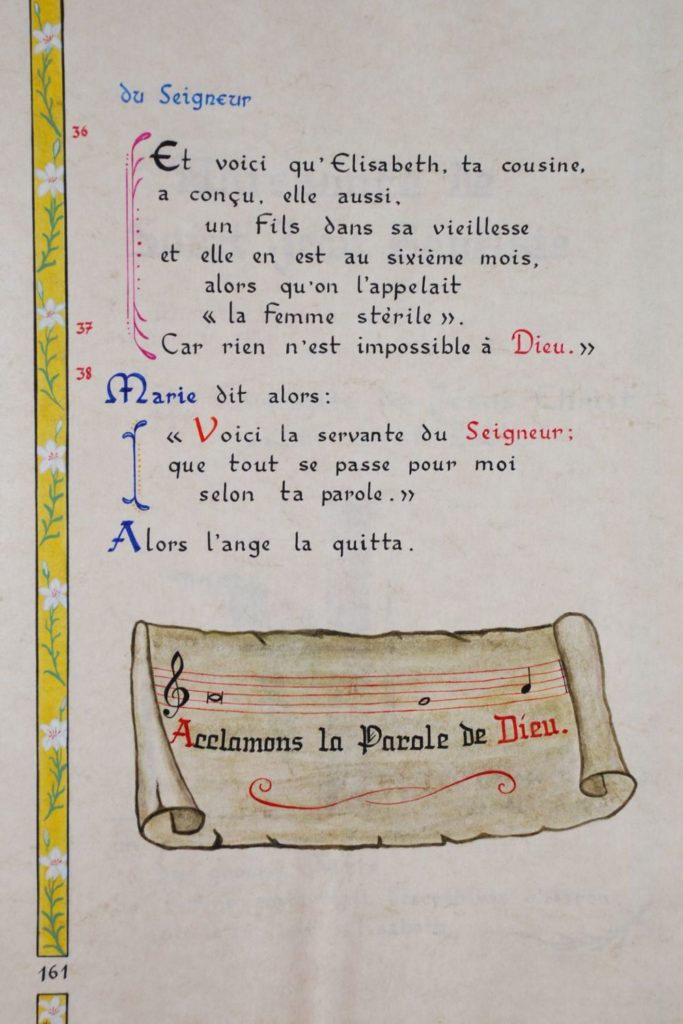 du Seigneur
36
Et voici qu'Elisabeth, ta cousine,
a conçu, elle aussi,
un Fils dans sa vieillesse
et elle en est au sixième mois,
alors qu'on l'appelait
« la Femme stérile ».
37
Car rien n'est impossible à Dieu. »
38
Marie dit alors:
« Voici la servante du Seigneur;
que tout se passe pour moi
selon ta parole. »
Alors l'ange la quitta.
Acclamons la Parole de Dieu.
161